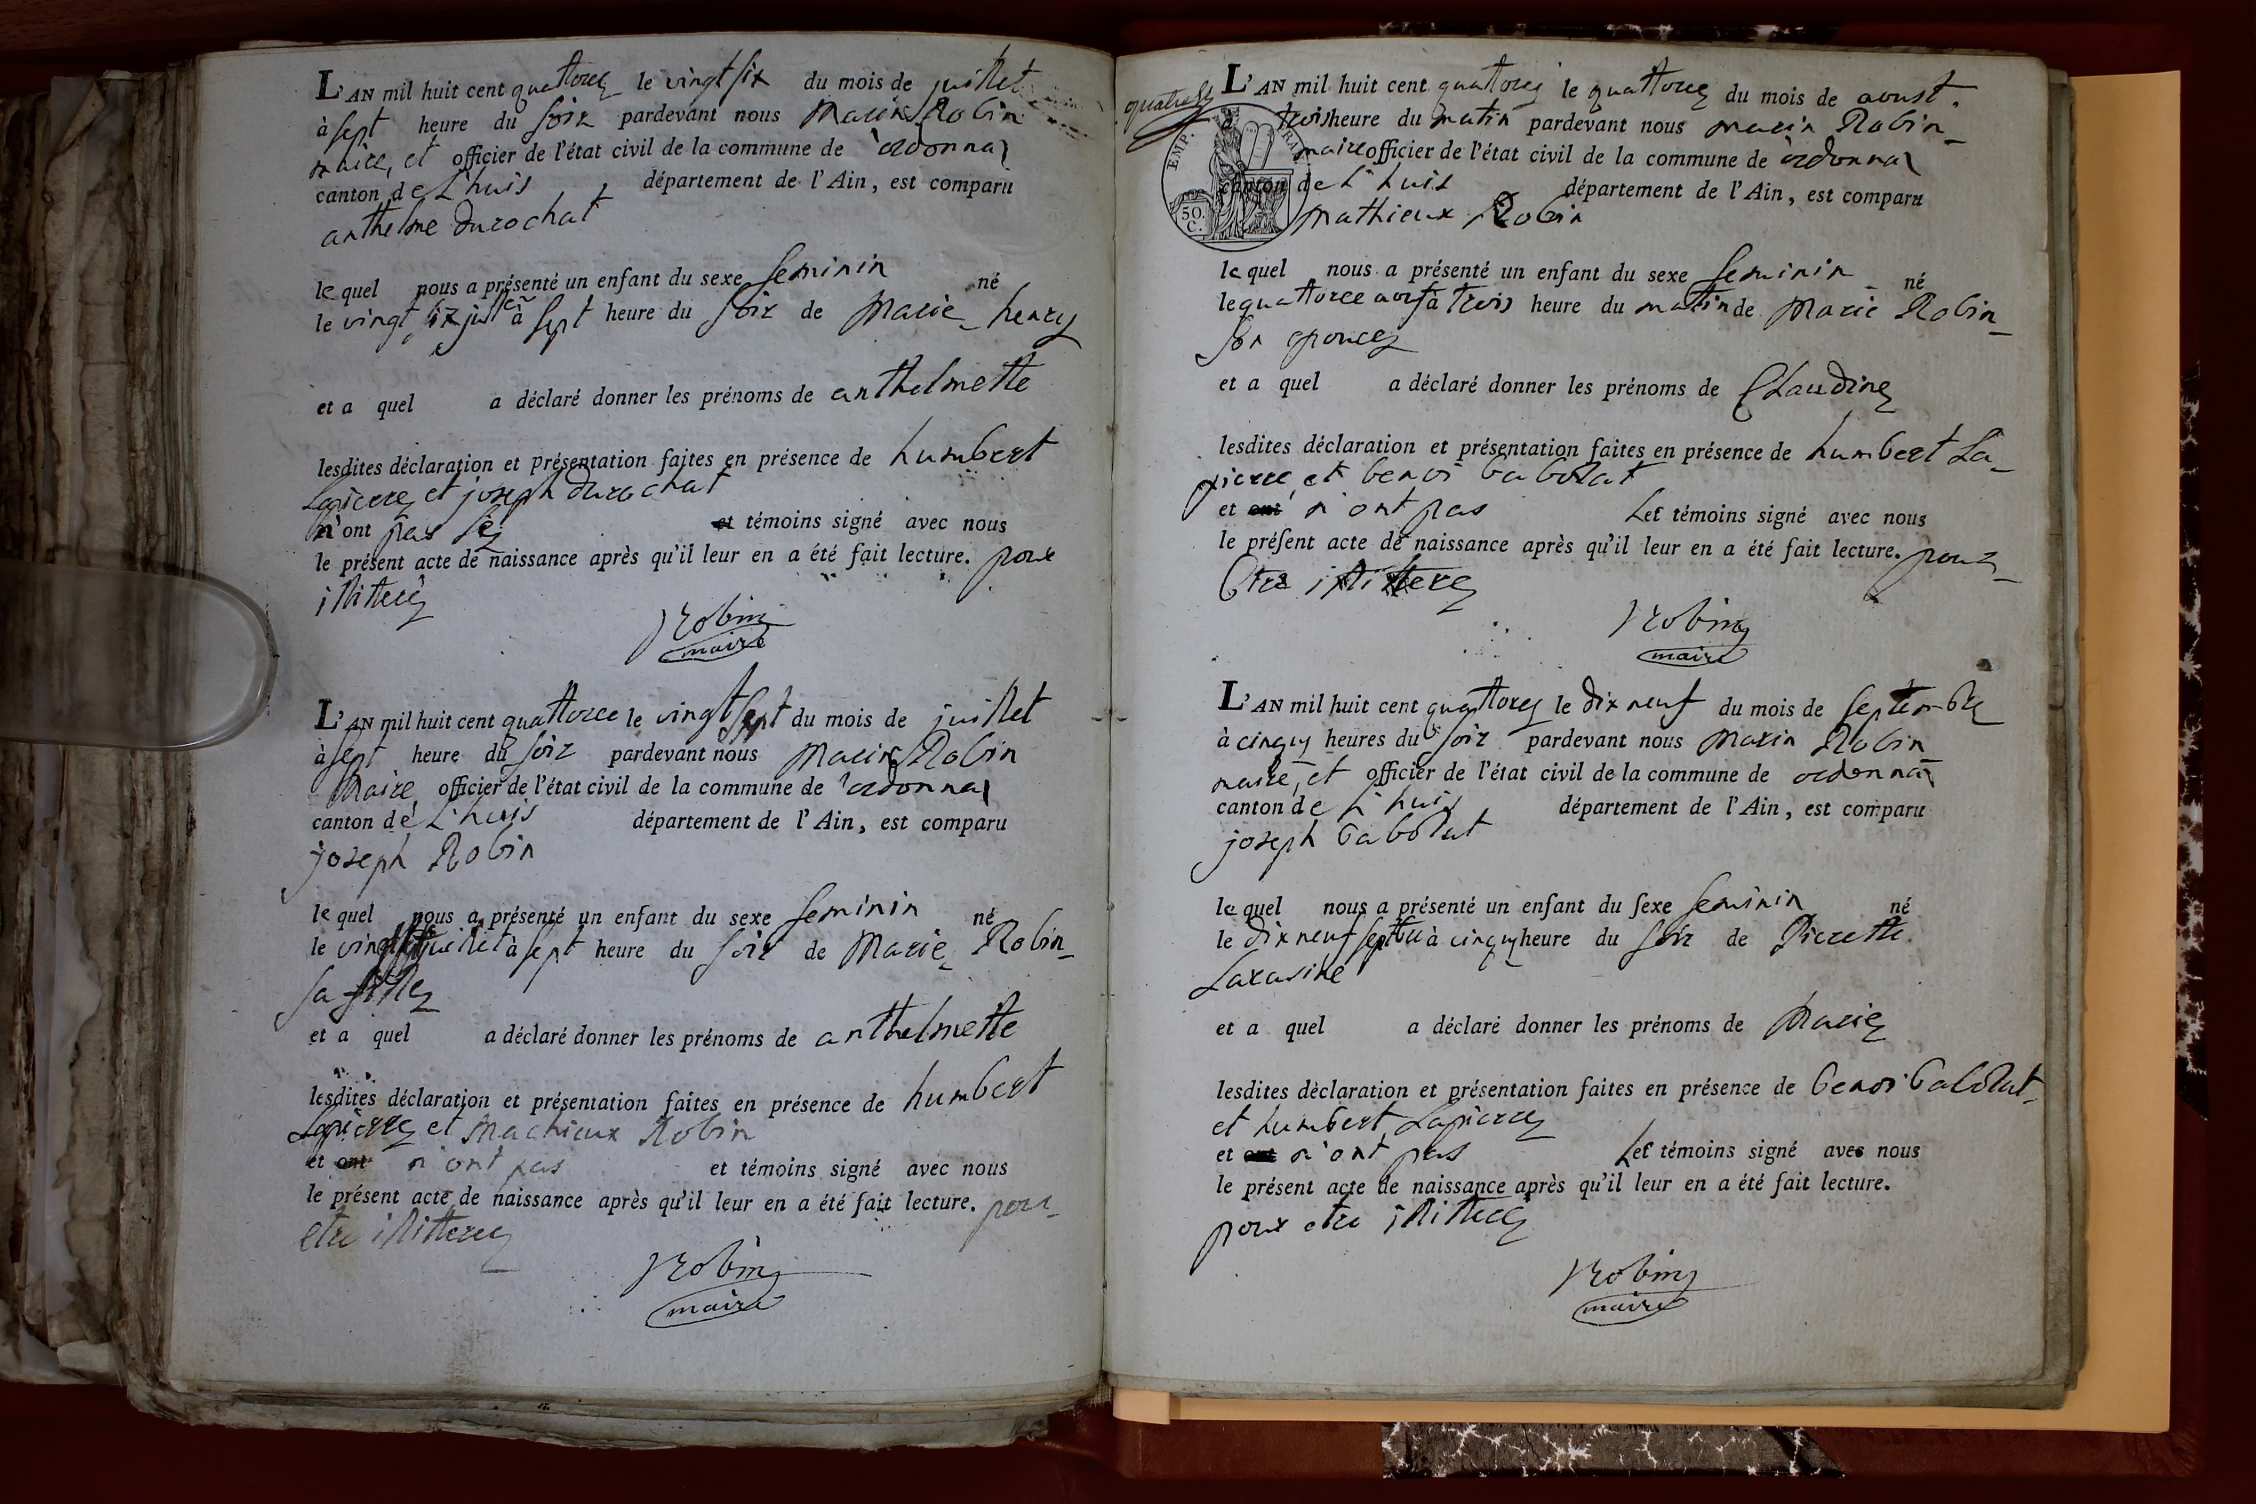 L'AN mil huit cent quattorze le vingt six du mois de juillet
à sept heure du soir pardevant nous Marin Robin
maire, et officier de l'état civil de la commune de ordonnas
canton de L'huis département de l'Ain, est comparu
anthelme durochat
le quel nous a présenté un enfant du sexe feminin né
le vingt six juillet à sept heure du soir de Marie henry
et a quel a déclaré donner les prénoms de anthelmette
lesdites déclaration et présentation faites en présence de humbert
Lapierre et joseph durochat
n'ont pas et témoins signé avec nous
le présent acte de naissance après qu'il leur en a été fait lecture. pour
illitteré
Robin
maire
L'AN mil huit cent quattorce le vingt sept du mois de juillet
à sept heure du soir pardevant nous Marin Robin
Maire officier de l'état civil de la commune de ordonnas
canton de L'huis département de l'Ain, est comparu
joseph Robin
le quel nous a présenté un enfant du sexe feminin né
le juillet à sept heure du soir de Marie Robin
sa fille
et a quel a déclaré donner les prénoms de anthelmette
lesdites déclaration et présentation faites en présence de humbert
Lapierre et Mathieux Robin
et ont n'ont pas et témoins signé avec nous
le présent acte de naissance après qu'il leur en a été fait lecture. pour
etre illitteré
Robin
maire
L'AN mil huit cent quattorze le quattorze du mois de aoust
EMP. 50. C.
à trois heure du matin pardevant nous marin Robin
maire officier de l'état civil de la commune de ordonnas
canton de L'huis département de l'Ain, est comparu
mathieux Robin
le quel nous a présenté un enfant du sexe feminin né
le quattorce à trois heure du matin de Marie Robin
son epouce
et a quel a déclaré donner les prénoms de Claudine
lesdites déclaration et présentation faites en présence de humbert La-
pierre et benoi babolat
et ont n'ont pas Les témoins signé avec nous
le présent acte de naissance après qu'il leur en a été fait lecture. pour
Etre illitteré
Robin
maire
L'AN mil huit cent quattorze le dix neuf du mois de septembre
à cinq heures du soir pardevant nous Marin Robin
maire, et officier de l'état civil de la commune de ordonnas
canton de L'huis département de l'Ain, est comparu
joseph babolat
le quel nous a présenté un enfant du sexe feminin né
le dix neuf à cinq heure du soir de Pierrette
et a quel a déclaré donner les prénoms de Marie
lesdites déclaration et présentation faites en présence de benoi babolat
et humbert Lapierre
et ont n'ont pas Les témoins signé avec nous
le présent acte de naissance après qu'il leur en a été fait lecture.
pour etre illitteré
Robin
maire